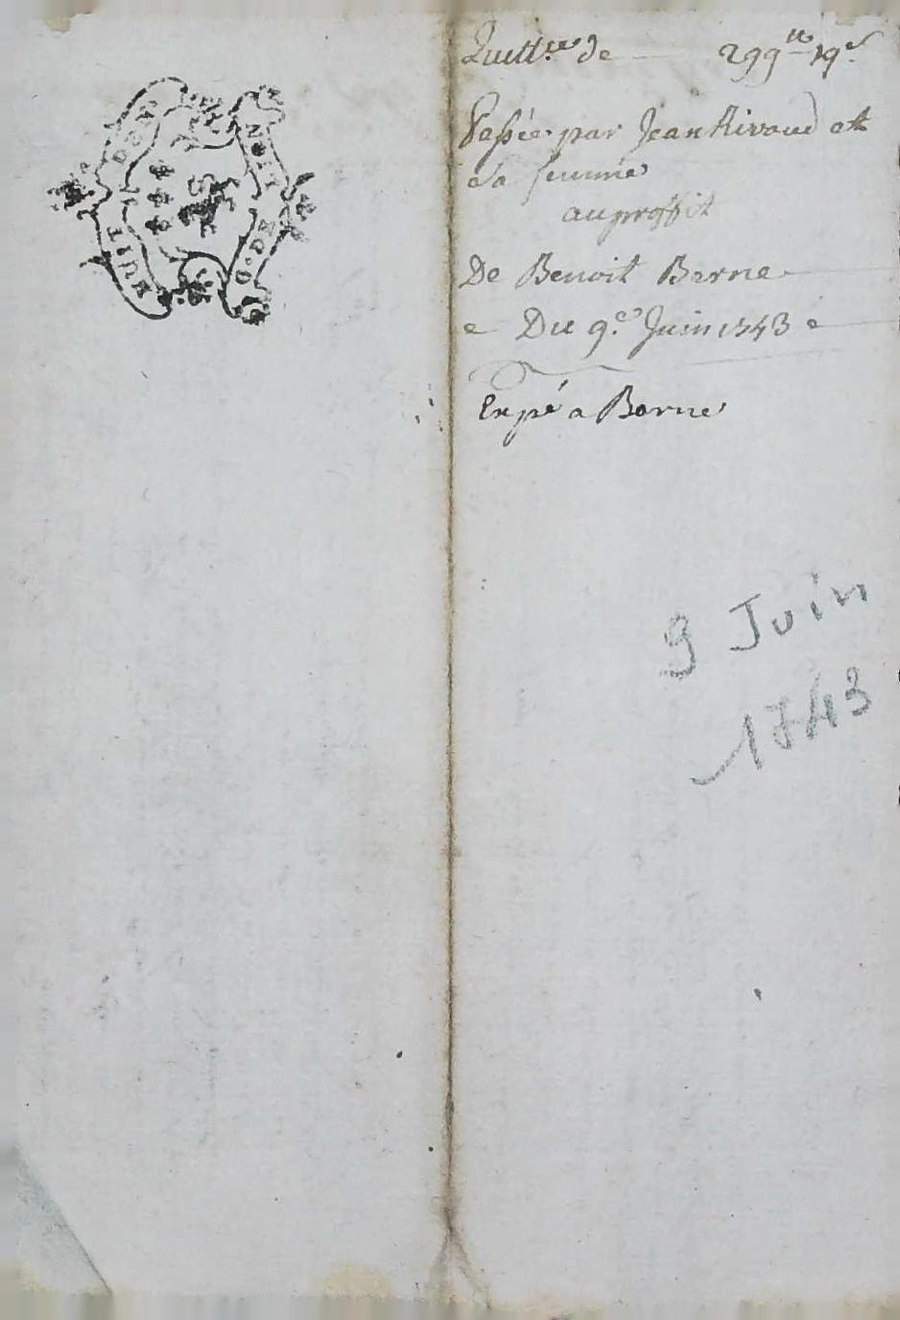 Quittce de 299tt 19s
Passée par Jean Rivaud et
sa femme
au proffit
De Benoit Berne
Du 9e Juin 1743
Expé a Berne
9 Juin
1743
HUIT DEN